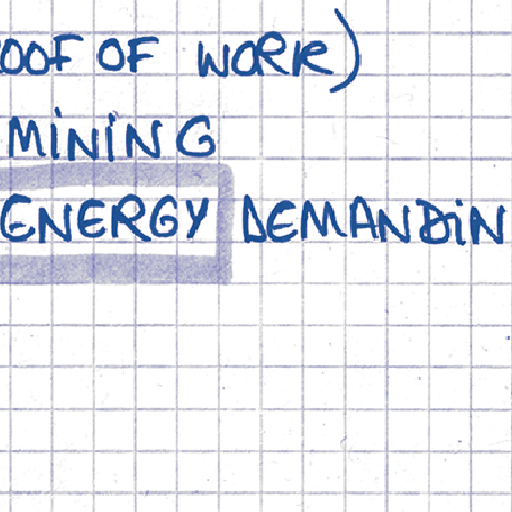 OOF OF WORK)
MINING
ENERGY DEMANDIN